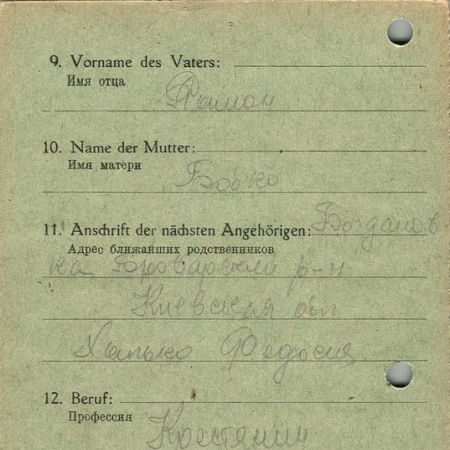 9. Vorname des Vaters:
Имя отца
10. Name der Mutter:
Имя матери
Бойко
11. Anschrift der nächsten Angehörigen: Богданов-
Адрес ближайших родственников
ка Броварский р-н
Киевская обл
Федосия
12. Beruf:
Профессия
Крестянин